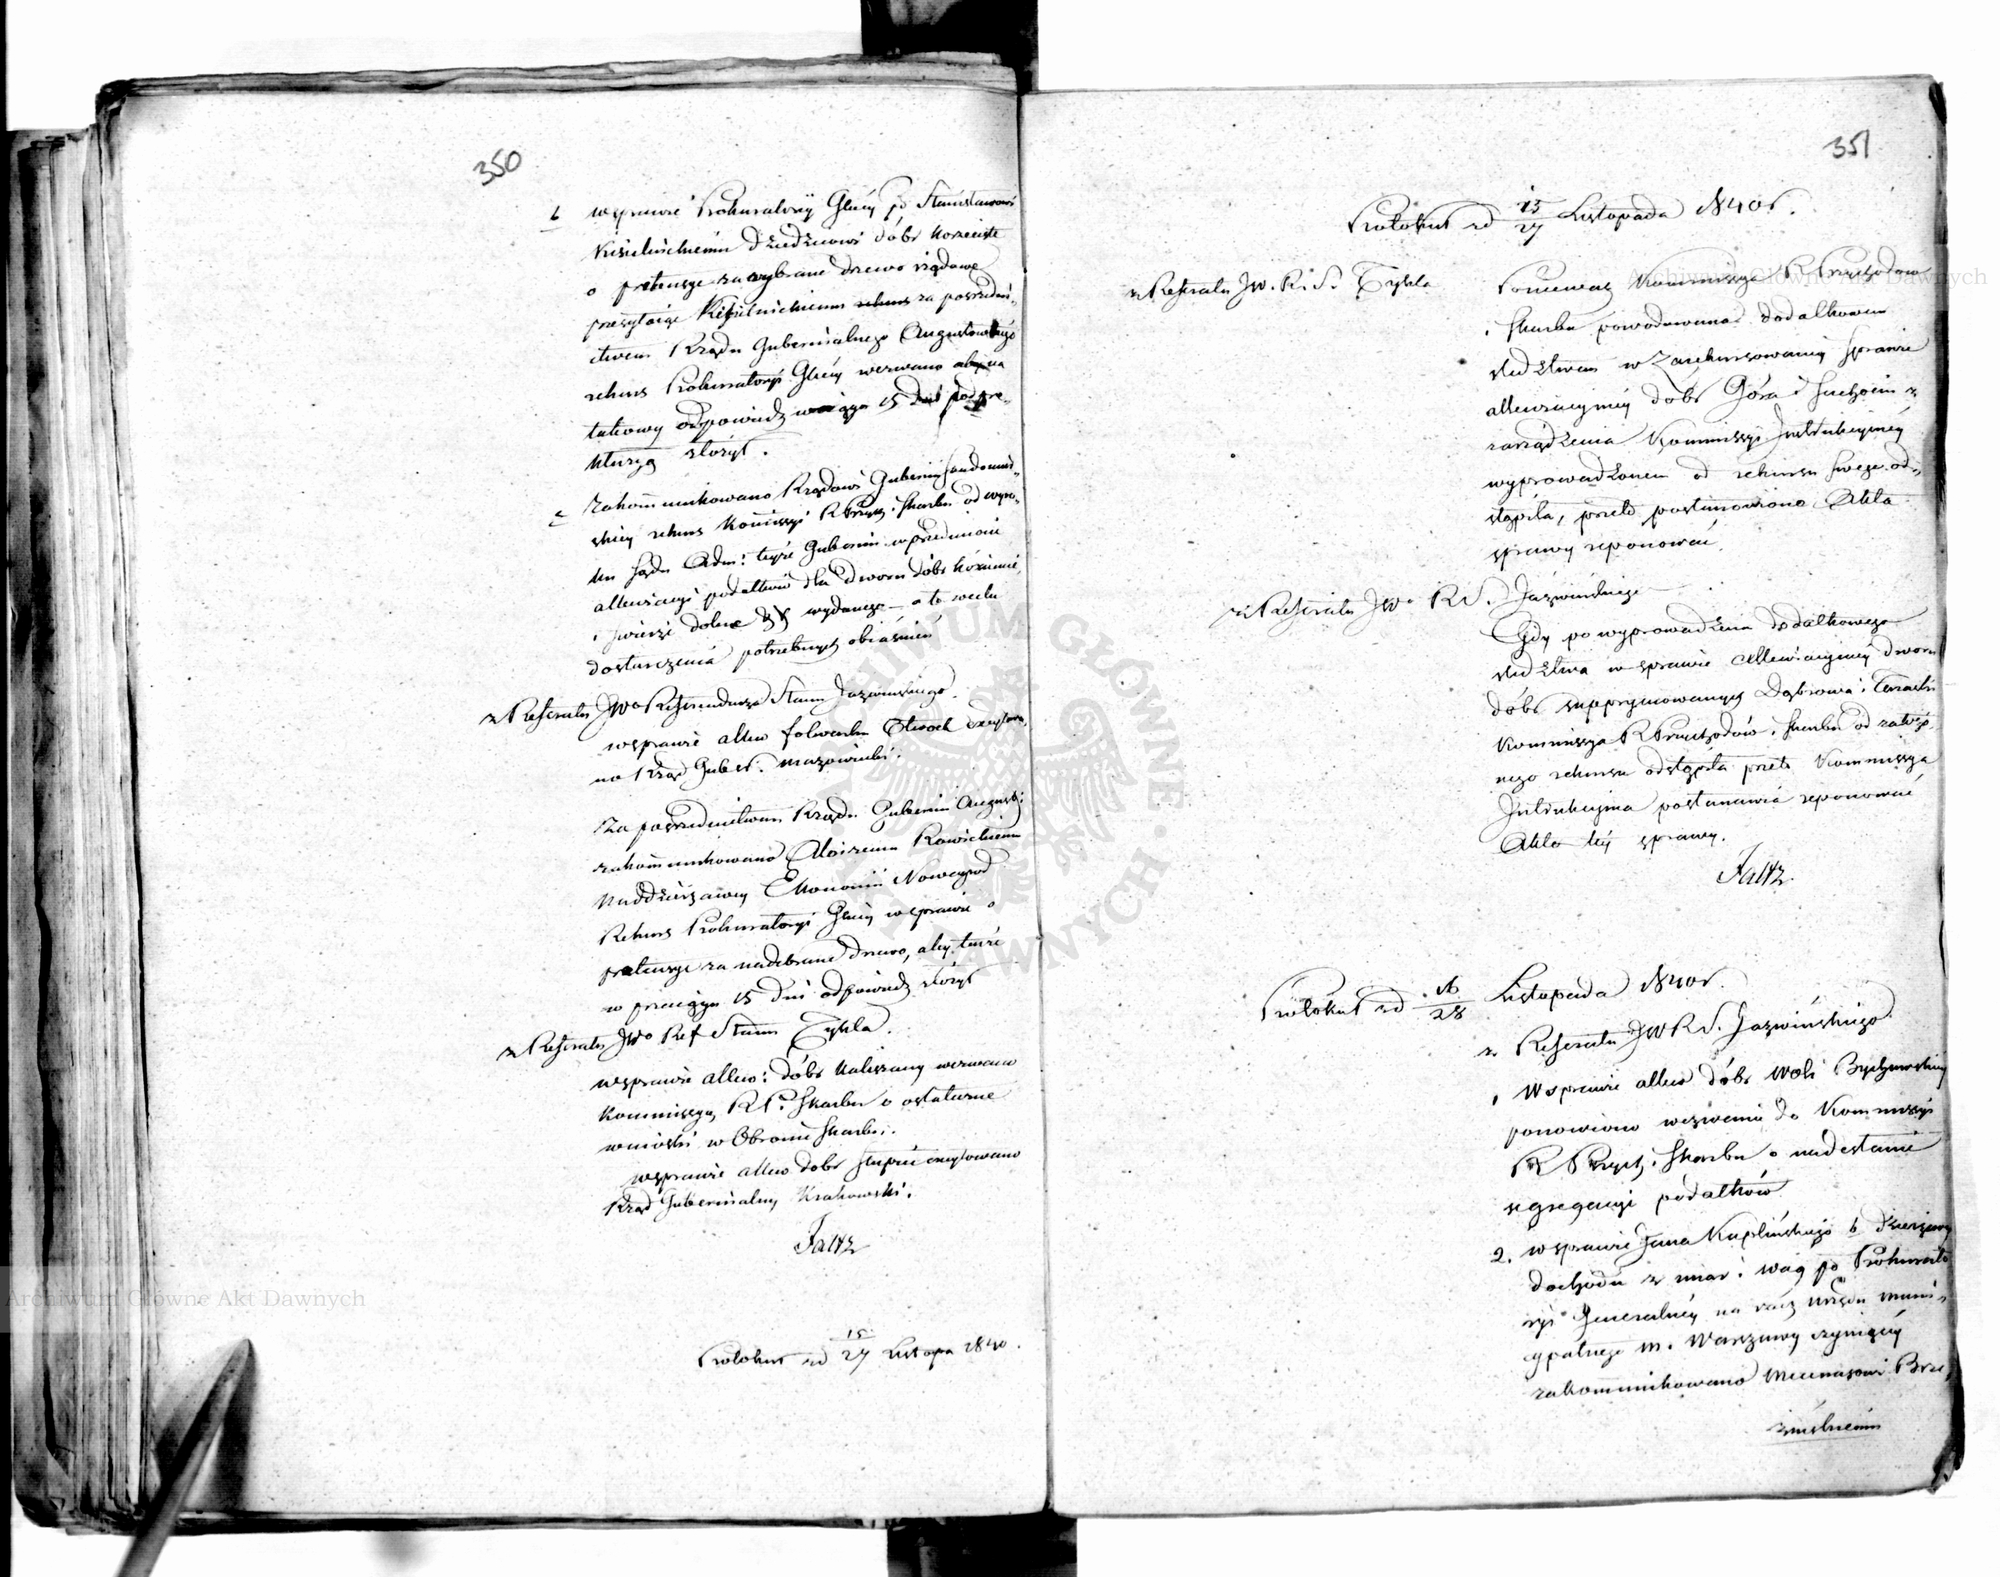 350
6 w sprawie Prokuratoryi Glney po Stanisławowi
Kisielnickiemu dziedzicowi dóbr Korzeniste
o pretensye za wybrane drzewo rządowe
przesyłaiąc Kisielnickiemu rekurs za pośredni-
ctwem Rządu Gubernialnego Augustowskiego
rekurs Prokuratoryi Glney wezwano aby na
takowy odpowiedź w ciągu 15 dni pod pre-
kluzyą złożył.
Zakommunikowano Rządowi Gubernij Sandomir-
skiey rekurs Kommissyi R Przych: i Skarbu od wyro-
ku Sądu Adm: teyże Gubernii w przedmiocie
allewiacyi podatków dla dworu dóbr
i dolne wydanego – a to w celu
dostarczenia potrzebnych obiaśnień
z Referatu JWo Referendarza Stanu Jazwinskiego.
w sprawie allew folwarku Otwock excytowa-
no Rząd Guber: Mazowiecki.
Za pośrednictwem Rządu Gubernii August:
zakommunikowano Aloizemu Rawickiemu
naddzierzawcy Ekonomii Nowawieś
Rekurs Prokuratoryi Glney w sprawie o
pretensye za nadebrane drzewo, aby tenże
w przeciągu 15 dni odpowiedź złożył
z Referatu JWo Ref Stanu Tykla.
w sprawie allew: dóbr Kaliszany wezwano
Kommissyą R P. i Skarbu o ostateczne
wnioski w Obronie Skarbu.
w sprawie allew dóbr Słupia excytowano
Rząd Gubernialny Krakowski.
Faltz
Protokuł zd 15/27 Listopa 1840.
351
Protokuł zd 15/27 Listopada 1840 r.
z Referatu JW. R. S. Tykla
Ponieważ Kommissya R Przychodów
i Skarbu powodowana dodatkowem
śledztwem w zarekursowaney sprawie
allewiacyiney dóbr Góra i Suchocin z
zarządzenia Kommissyi Instrukcyiney
wyprowadzonem od rekursu swego od-
stąpiła, przeto postanowiono Akta
sprawy reponować.
z Referatu JWo R S. Jazwińskiego
Gdy po wyprowadzeniu dodatkowego
śledztwa w sprawie allewiacyiney dworu
dóbr suppry­mowanych Dąbrowa i
Kommissya R Przychodów i Skarbu od założo-
nego rekursu odstąpiła przeto Kommissya
Instrukcyjna postanawia reponować
Akta tey sprawy.
Faltz.
Protokuł zd 16/28 Listopada 1840 r.
z Referatu JW R S. Jazwińskiego.
1 W sprawie allew dóbr Woli Bychawskiey
ponowiono wezwanie do Kommissyi
R Przych: i Skarbu o nadesłanie
segregacyi podatków
2. w sprawie Jana Kuplińskiego b. dzierżawcy
dochodu z miar i wag po Prokurato
ryi Generalney na rzecz urzędu muni-
cypalnego m. Warszawy czyniącey
zakommunikowano Mecenasowi Brze-
zińskiemu